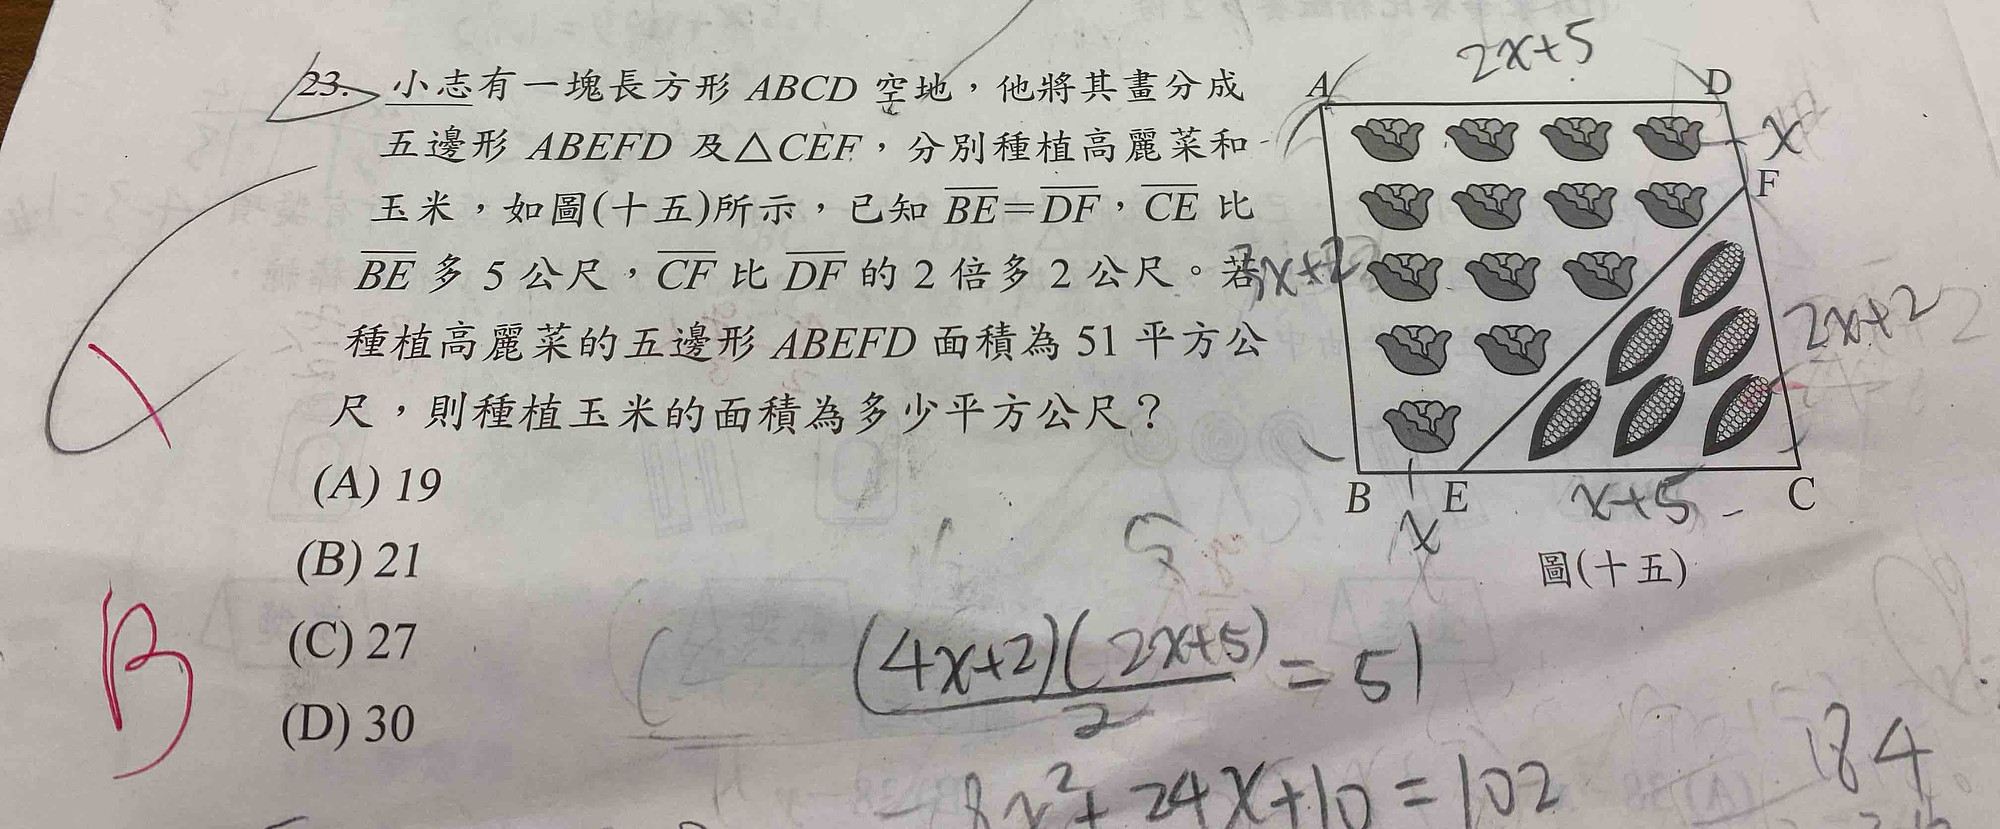 2x+5
23. 小志有一塊長方形 ABCD 空地，他將其畫分成
五邊形 ABEFD 及△CEF，分別種植高麗菜和
玉米，如圖(十五)所示，已知 BE=DF，CE 比
BE 多 5 公尺，CF 比 DF 的 2 倍多 2 公尺。若
種植高麗菜的五邊形 ABEFD 面積為 51 平方公
尺，則種植玉米的面積為多少平方公尺？
(A) 19
(B) 21
(C) 27
(D) 30
A
D
x
F
3x+2
2x+2
B
E
C
x
x+5
圖(十五)
B
(4x+2)(2x+5)
2
= 51
8x²+24x+10=102
184